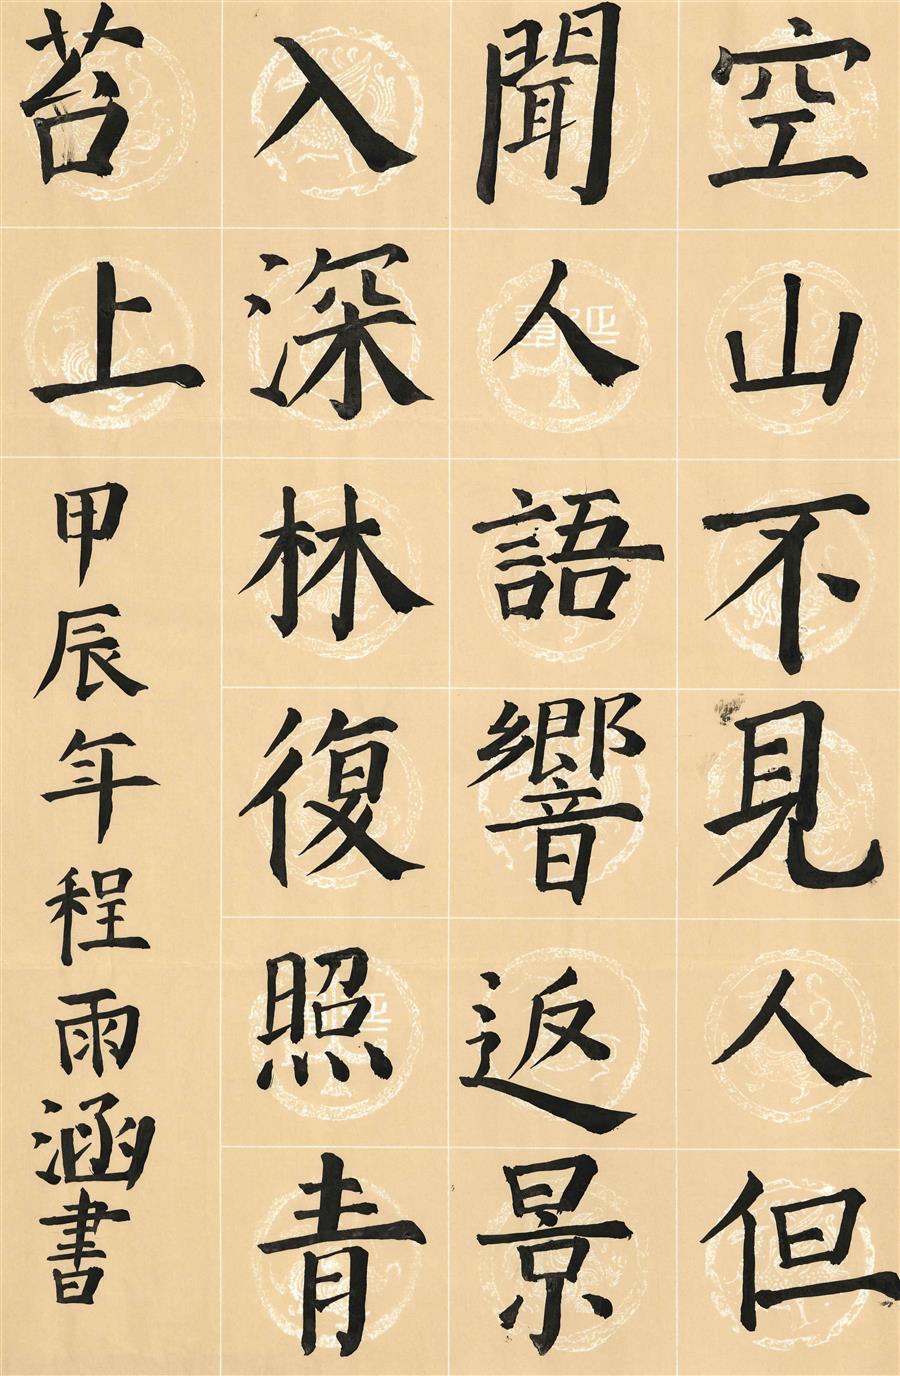 空山不見人但
聞人語響返景
入深林復照青
苔上
甲辰年程雨涵書